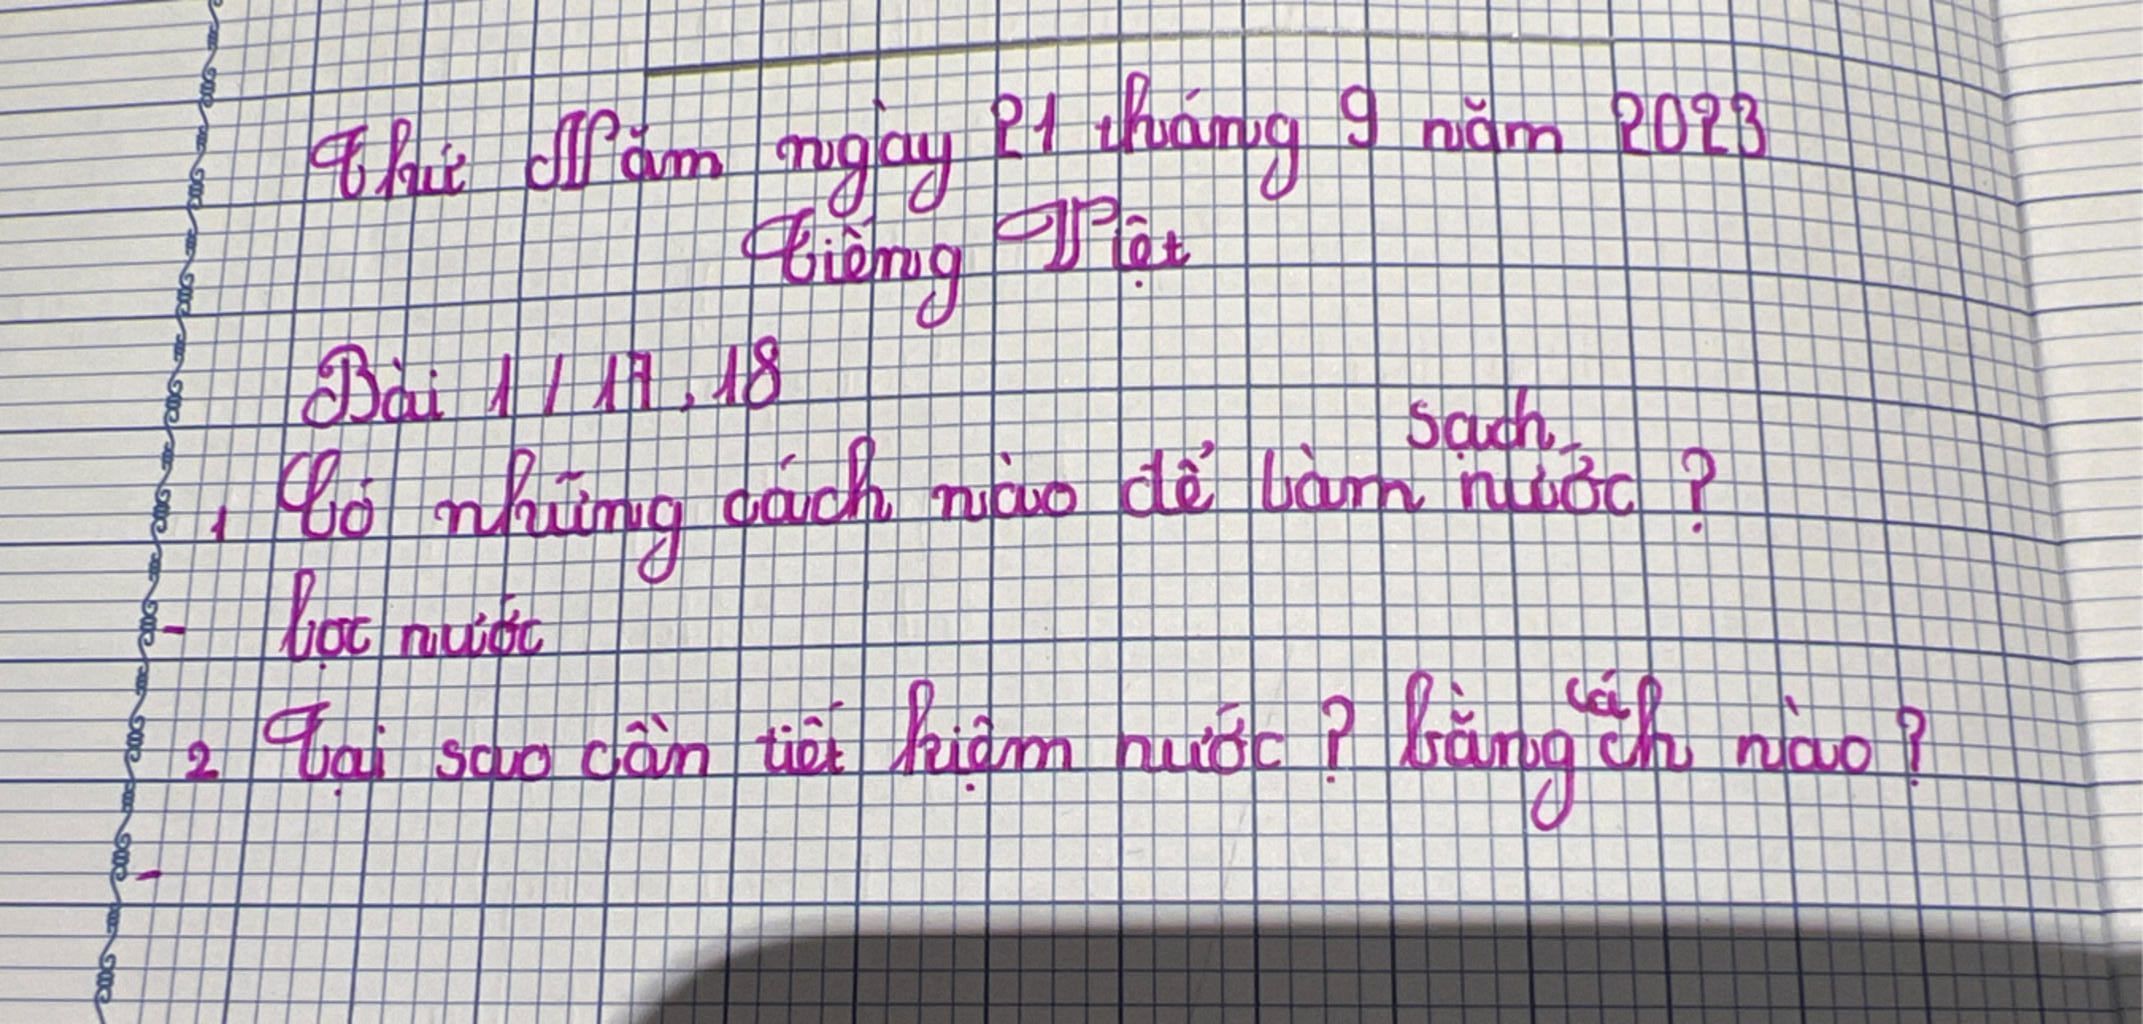 Thứ Năm ngày 21 tháng 9 năm 2023
Tiếng Việt
Bài 1 / 17, 18
1 Có những cách nào để làm sạch nước ?
- lọc nước
2 Tại sao cần tiết kiệm nước ? bằng cách nào ?
-